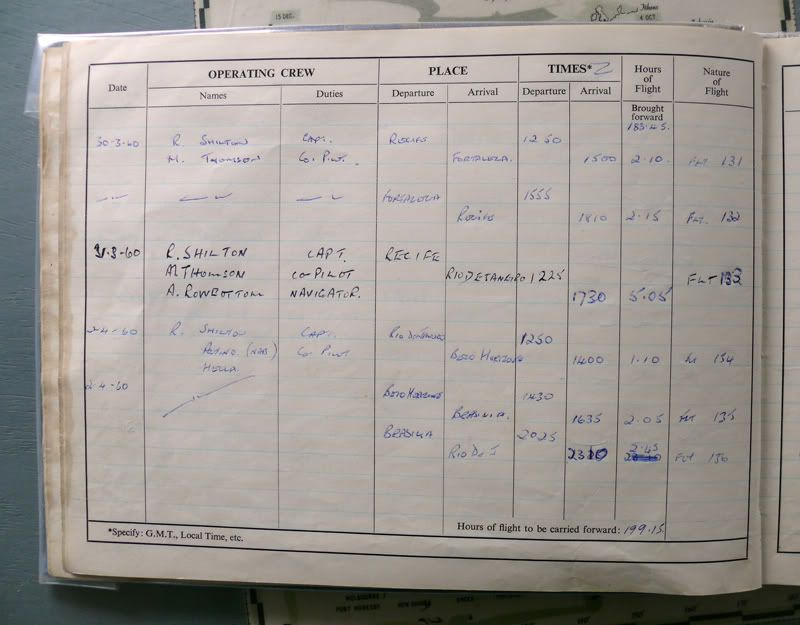 15 DEC.
4 OCT
Date OPERATING CREW PLACE TIMES* Z Hours of Flight Nature of Flight
Names Duties Departure Arrival Departure Arrival
Brought forward
183.45.
30-3-60 R. SHILTON CAPT. RECIFE 1250
M. THOMSON CO. PILOT. FORTALEZA. 1500 2.10 FLT 131
FORTALEZA 1555
RECIFE 1810 2.15 FLT. 132
31-3-60 R. SHILTON CAPT. RECIFE
M THOMSON CO PILOT RIO DE JANEIRO 1225 FLT 133
A. ROWBOTTOM NAVIGATOR. 1730 5.05
2-4-60 R. SHILTON CAPT. RIO DE JANEIRO 1250
(NAB) CO PILOT BELO HORIZONTE 1400 1.10 134
2.4.60 BELO HORIZONTE 1430
BRASILIA. 1635 2.05 FLT 135
BRASILIA 2025
RIO DE J 2310 2.45 FLT 136
*Specify: G.M.T., Local Time, etc. Hours of flight to be carried forward: 199.15.
MELBOURNE
PORT MORESBY